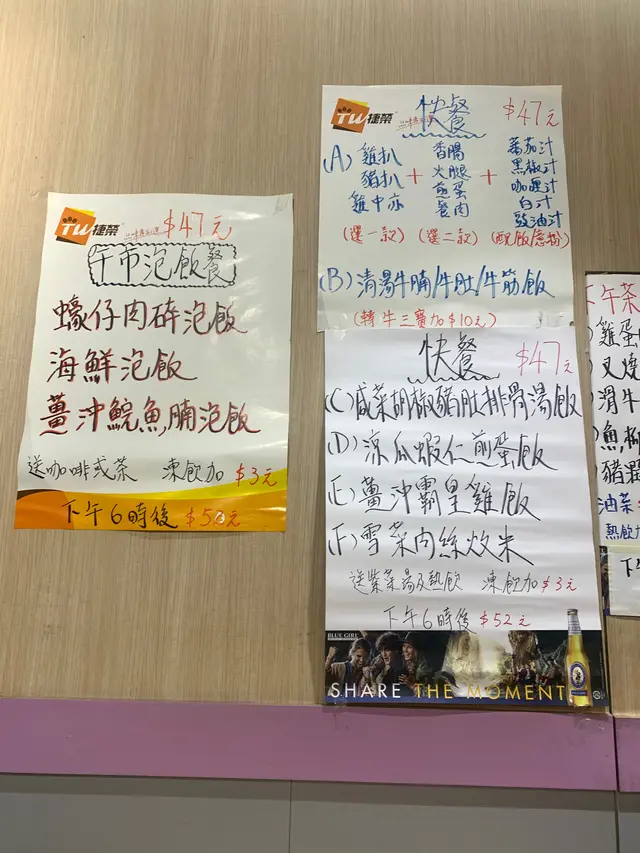 TW捷榮
$47元
午市泡飯餐
蠔仔肉碎泡飯
海鮮泡飯
薑沖鯇魚腩泡飯
送咖啡或茶 凍飲加 $3元
下午6時後 $50元
TW捷榮
快餐 $47元
(A) 雞扒 豬扒 雞中亦
+
香腸 火腿 煎蛋 餐肉
+
蕃茄汁 黑椒汁 咖喱汁 白汁 豉油汁
(選一款) (選二款) (配飯/意粉)
(B) 清湯牛腩/牛肚/牛筋飯
(轉牛三寶加$10元)
快餐 $47元
(C) 咸菜胡椒豬肚排骨湯飯
(D) 涼瓜蝦仁煎蛋飯
(E) 薑沖霸皇雞飯
(F) 雪菜肉絲炆米
送紫菜湯及熱飲 凍飲加$3元
下午6時後 $52元
BLUE GIRL
SHARE THE MOMENT
下午茶
雞蛋
叉燒
滑牛
魚柳
油菜
熱飲